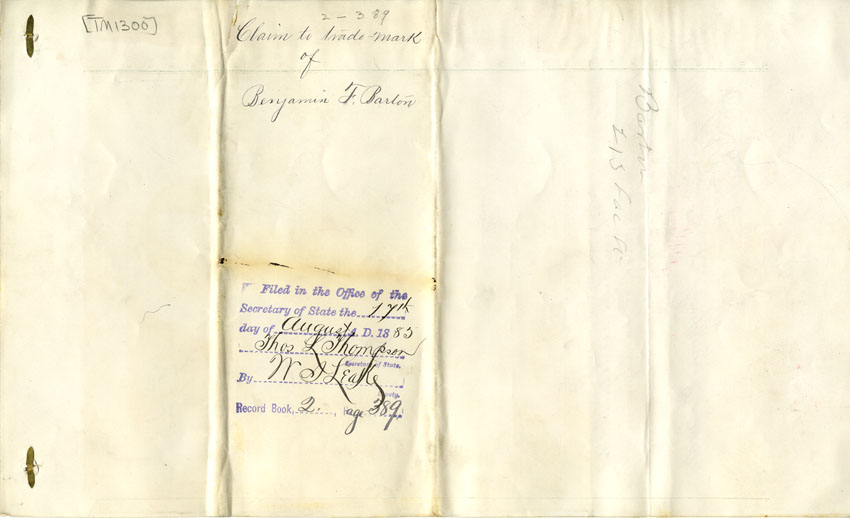 [TM1300]
2-389
Claim to trade-mark
of
Benjamin F. Barton
Filed in the Office of the
Secretary of State the 17th
day of August A. D. 1883
Thos L Thompson
Secretary of State.
By W
Deputy.
Record Book, 2. , Page 389
Barton
213